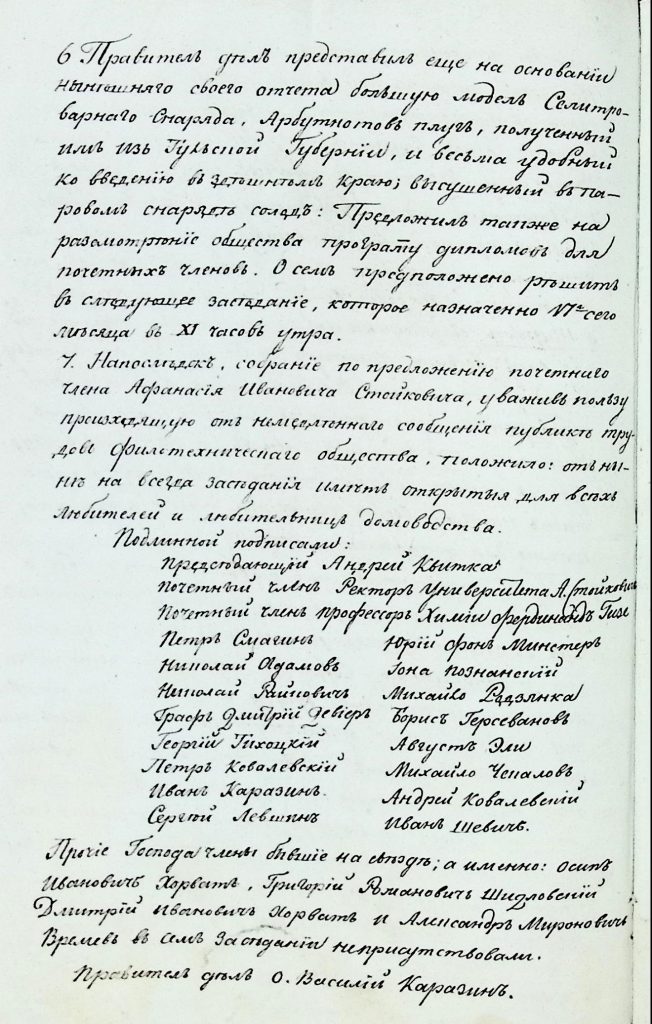 6 Правитель дѣлъ представилъ еще на основаніи
нынѣшняго своего отчета большую модель Селитро-
варнаго Снаряда, Арбутнотовъ плугъ, полученный
имъ изъ Тульской Губерніи, и весьма удобный
ко введенію въ здѣшнемъ краю; высушенный въ па-
ровомъ снарядѣ солодъ: Предложилъ также на
разсмотрѣніе общества програму дипломовъ для
почетныхъ членовъ. О семъ предположено рѣшить
въ слѣдующее засѣданіе, которое назначенно VIго сего
мѣсяца въ XI часовъ утра.
7. Напослѣдокъ, собраніе по предложенію почетнаго
члена Афанасія Ивановича Стойковича, уваживъ пользу
происходящую отъ немедленнаго сообщенія публикѣ тру-
довъ Филотехническаго общества, положило: отъ ны-
нѣ на всегда засѣданія имѣть открытыя для всѣхъ
любителей и любительницъ домоводства.
Подлинной подписали:
Предсѣдающій Андрей Квитка
почетный членъ Ректоръ Университета А. Стойковичъ
Почетный членъ профессоръ Химіи Фердинандъ Гизе
Петръ Смагинъ Юрій фонъ Минстеръ
Николай Адамовъ Іона Познанскій
Николай Райновичъ Михайло Родзянка
Графъ Дмитрій Девіеръ Борисъ Герсевановъ
Георгій Тихоцкій Августъ Эли
Петръ Ковалевскій Михайло Чепаловъ
Иванъ Каразинъ. Андрей Ковалевскій
Сергѣй Левшинъ Иванъ Шевичъ.
Прочіе Господа члены бывшіе на съѣздѣ; а именно: Осипъ
Ивановичъ Хорватъ, Григорій Романовичъ Шидловскій
Дмитрій Ивановичъ Хорватъ и Александръ Мироновичъ
Времевъ въ семъ засѣданіи неприсутствовали.
Правитель дѣлъ О. Василій Каразинъ.